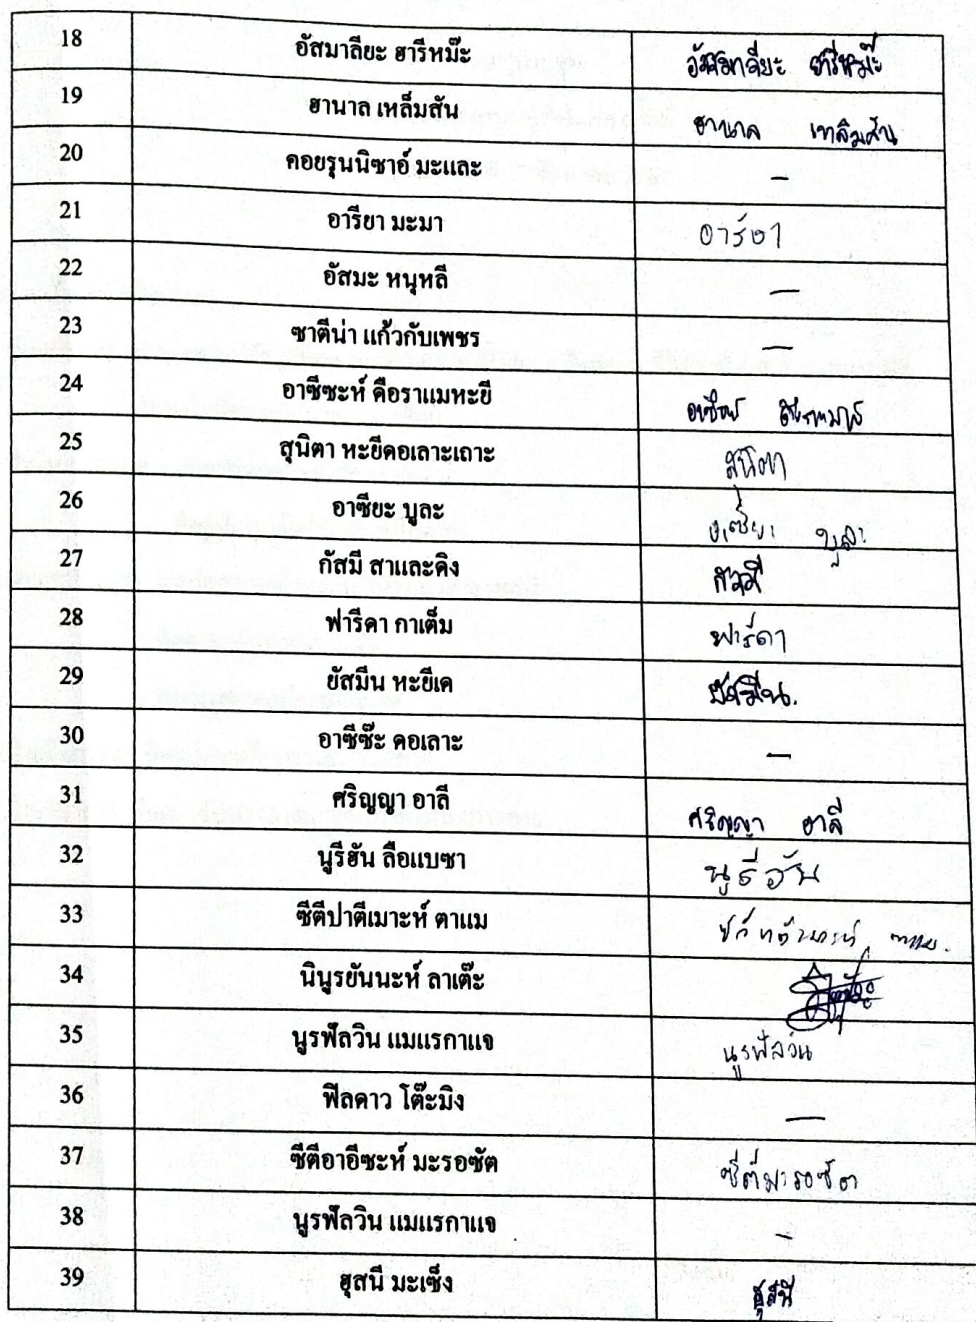 18 อัสมาลียะ ฮารีหม๊ะ อัสมาลียะ ฮารีหม๊ะ
19 ฮานาล เหล็มสัน ฮานาล เหล็มสัน
20 คอยรุนนิซาอ์ มะและ –
21 อารียา มะมา อารียา
22 อัสมะ หนุหลี –
23 ซาตีน่า แก้วกับเพชร –
24 อาซีซะห์ ดือราแมหะยี
25 สุนิตา หะยีดอเลาะเถาะ สุนิตา
26 อาซียะ บูละ
27 กัสมี สาและดิง กัสมี
28 ฟารีดา กาเต็ม ฟารีดา
29 ยัสมีน หะยีเค ยัสมีน.
30 อาซีซ๊ะ ดอเลาะ –
31 ศริญญา อาลี ศริญญา อาลี
32 นูรีฮัน ลือแบซา นูรีฮัน
33 ซีตีปาตีเมาะห์ ตาแม
34 นินูรยันนะห์ ลาเต๊ะ
35 นูรฟัลวิน แมแรกาแจ นูรฟัลวิน
36 ฟิลดาว โต๊ะมิง –
37 ซีตีอาอีซะห์ มะรอซัต
38 นูรฟัลวิน แมแรกาแจ –
39 ฮุสนี มะเซ็ง ฮุสนี